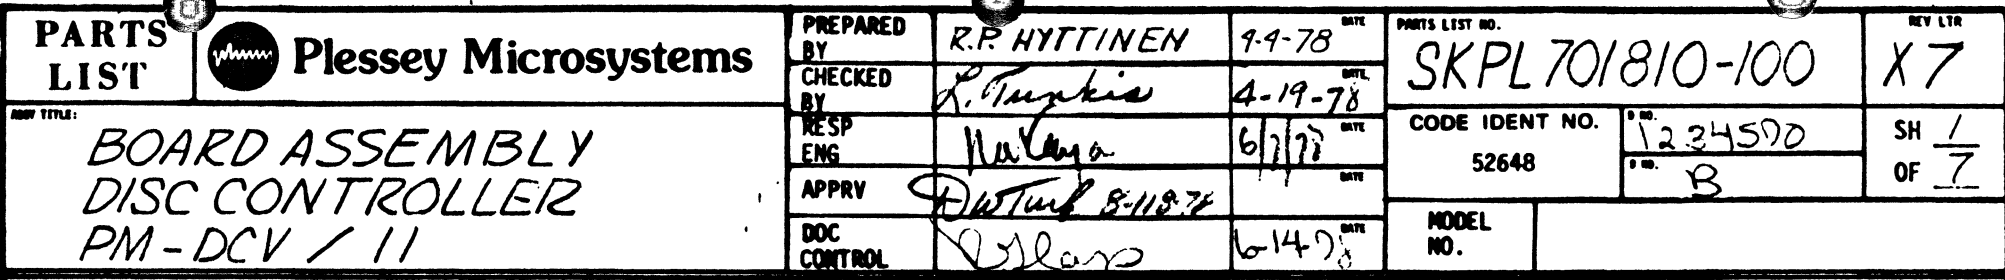 PARTS LIST
Plessey Microsystems
ASSY TITLE:
BOARD ASSEMBLY
DISC CONTROLLER
PM-DCV / 11
PREPARED BY R.P. HYTTINEN 4-4-78 DATE
CHECKED BY L. Tunkis 4-19-78 DATE
RESP ENG DATE
APPRV DATE
DOC CONTROL 6-14-78 DATE
PARTS LIST NO.
SKPL701810-100
REV LTR
X7
CODE IDENT NO.
52648
NO.
1234570
NO.
B
SH 1
OF 7
MODEL NO.